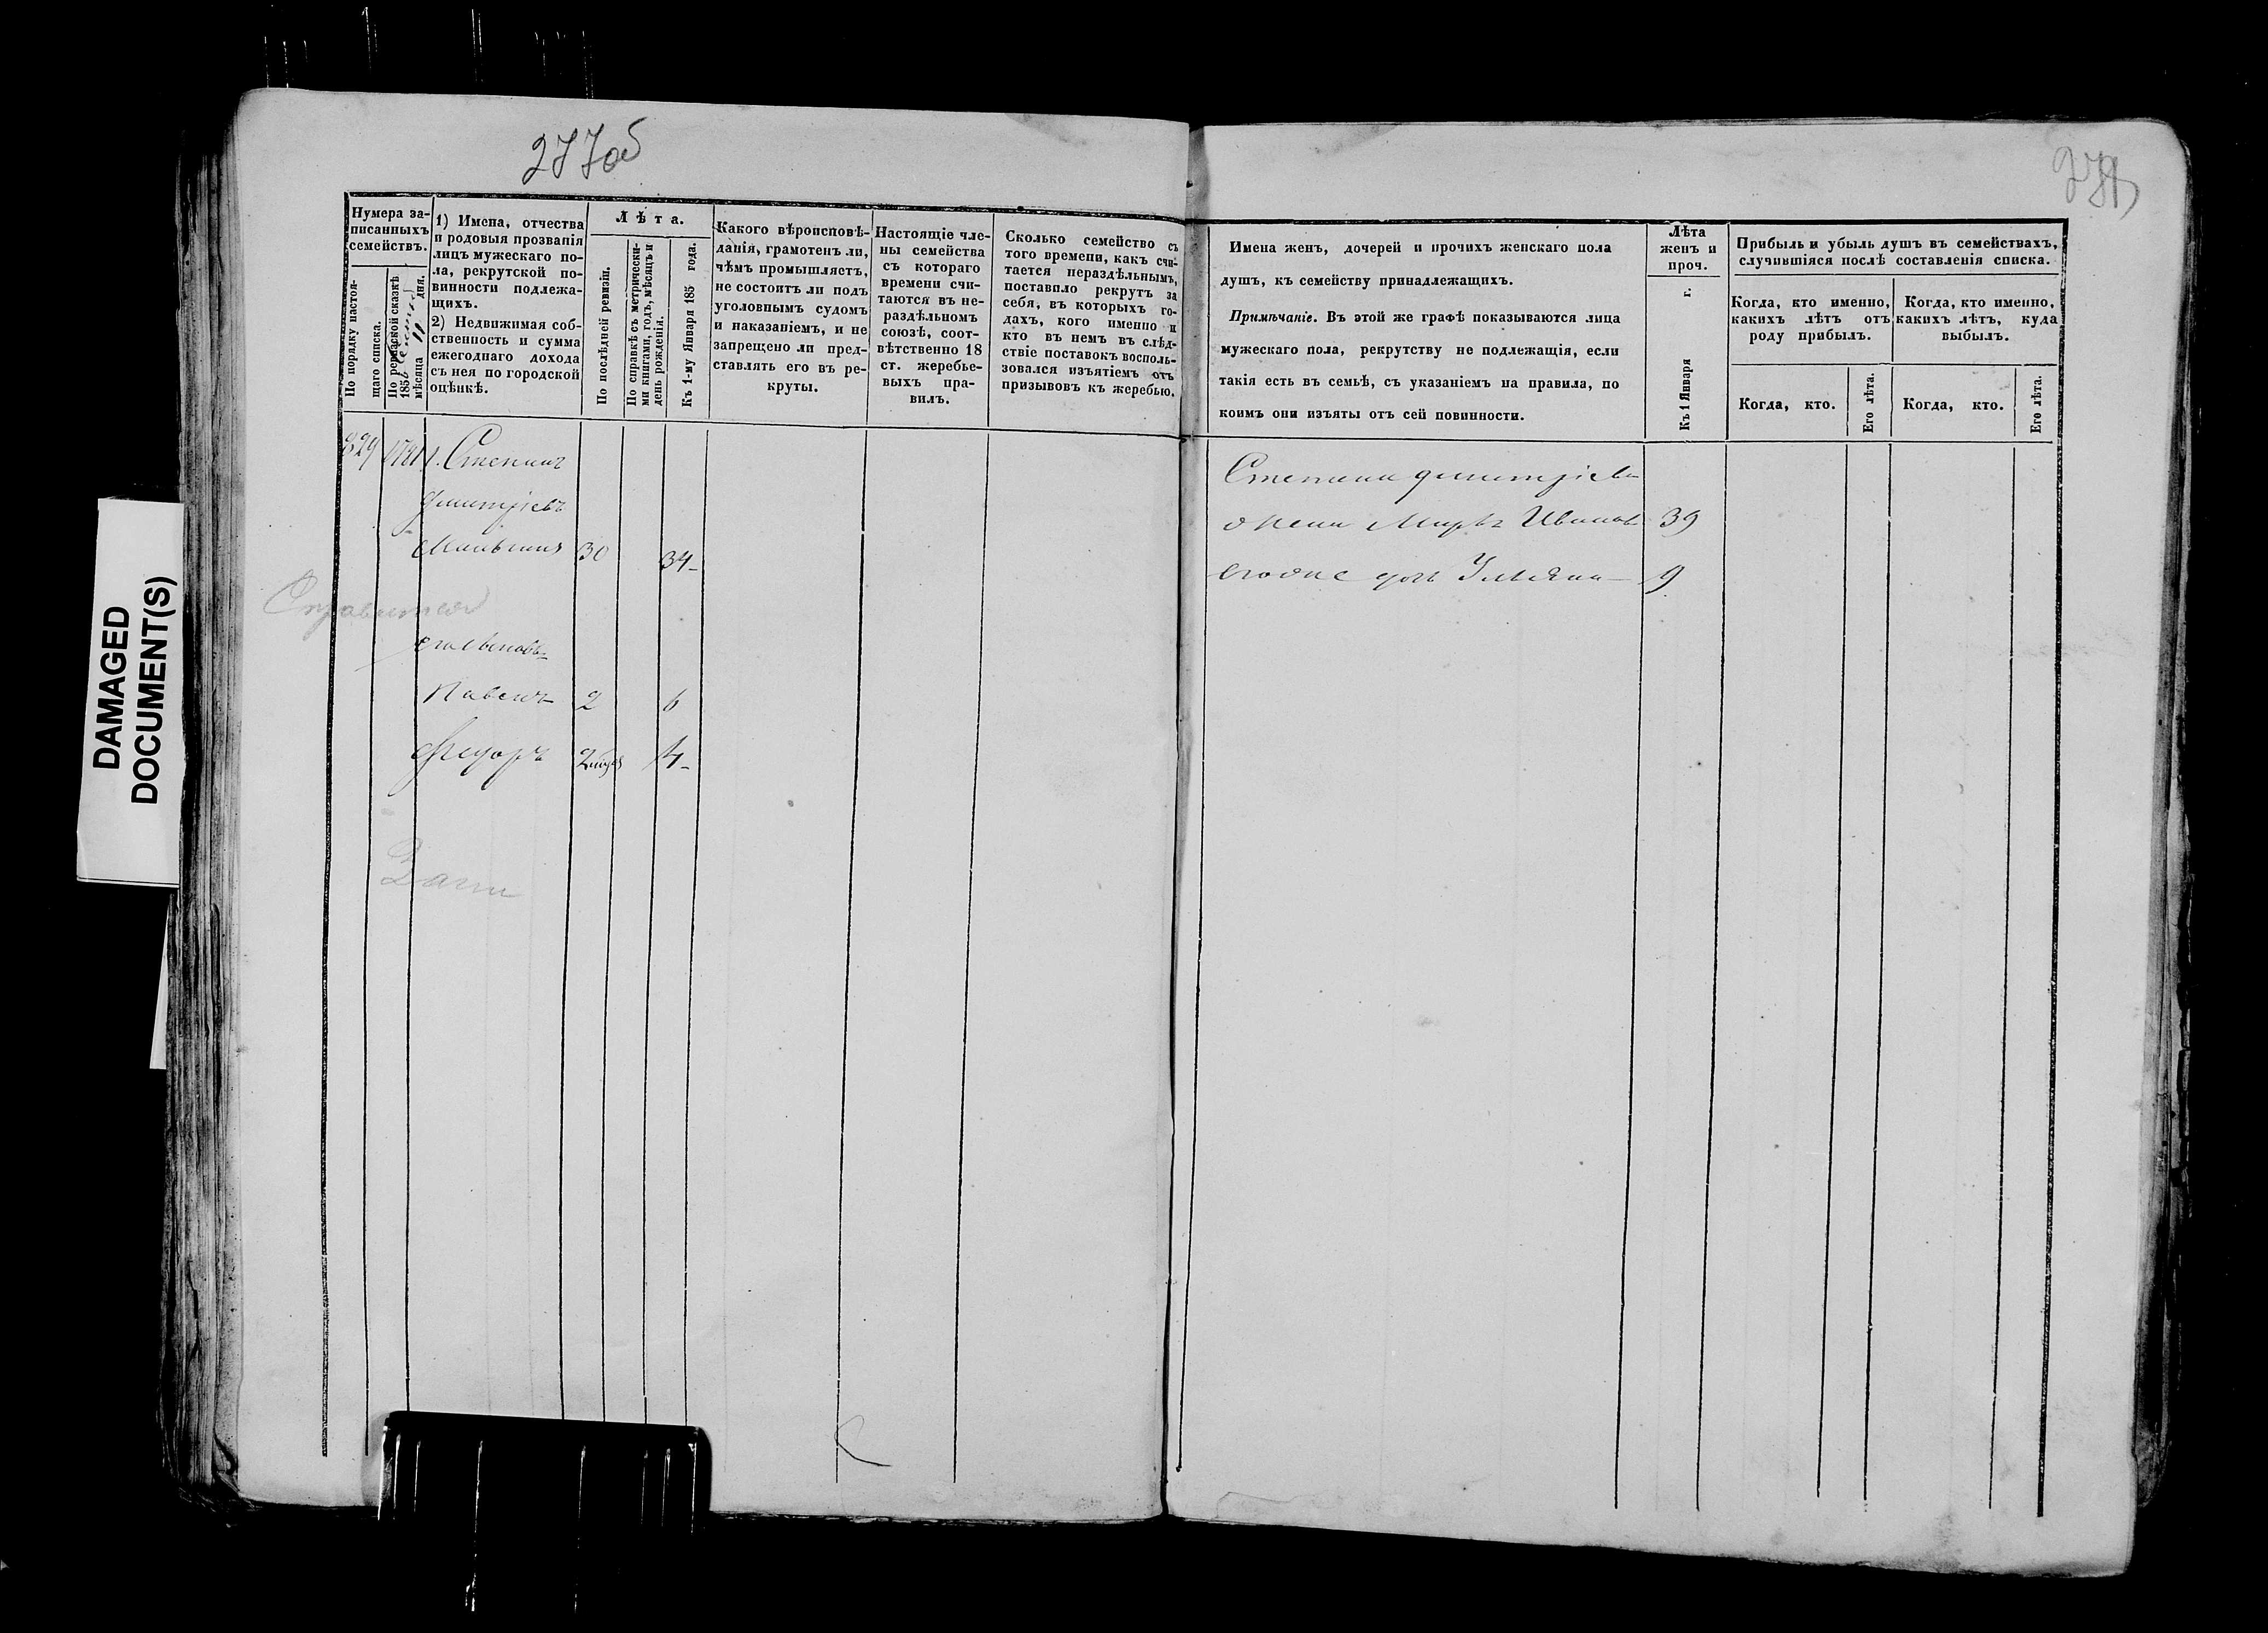 277об
DAMAGED
DOCUMENT(S)
Нумера за-
писанныхъ
семействъ.
По порядку настоя-
щаго списка.
По ревизской сказкѣ
1858
мѣсяца 11 дня.
1) Имена, отчества
и родовыя прозванія
лицъ мужескаго по-
ла, рекрутской по-
винности подлежа-
щихъ.
2) Недвижимая соб-
ственность и сумма
ежегоднаго дохода
съ нея по городской
оцѣнкѣ.
Лѣта.
По послѣдней ревизіи.
По справкѣ съ метрически-
ми книгами, годъ, мѣсяцъ и
день рожденія.
Къ 1-му Января 185 года.
Какого вѣроисповѣ-
данія, грамотенъ ли,
чѣмъ промышляетъ,
не состоитъ ли подъ
уголовнымъ судомъ
и наказаніемъ, и не
запрещено ли пред-
ставлять его въ ре-
круты.
Настоящіе чле-
ны семейства
съ котораго
времени счи-
таются въ не-
раздѣльномъ
союзѣ, соот-
вѣтственно 18
ст. жеребье-
выхъ пра-
вилъ.
Сколько семейство съ
того времени, какъ счи-
тается нераздѣльнымъ,
поставило рекрутъ за
себя, въ которыхъ го-
дахъ, кого именно и
кто въ немъ въ слѣд-
ствіе поставокъ восполь-
зовался изъятіемъ отъ
призывовъ къ жеребью.
829 1. Степанъ
Дмитріевъ
30 34
его сыновья
Павелъ 2 6
Федоръ 4
Имена женъ, дочерей и прочихъ женскаго пола
душъ, къ семейству принадлежащихъ.
Примѣчаніе. Въ этой же графѣ показываются лица
мужескаго пола, рекрутству не подлежащія, если
такія есть въ семьѣ, съ указаніемъ на правила, по
коимъ они изъяты отъ сей повинности.
Лѣта
женъ и
проч.
Къ 1 Января г.
Прибыль и убыль душъ въ семействахъ,
случившіяся послѣ составленія списка.
Когда, кто именно,
какихъ лѣтъ отъ
роду прибылъ.
Когда, кто именно,
какихъ лѣтъ, куда
выбылъ.
Когда, кто.
Его лѣта.
Когда, кто.
Его лѣта.
Степана Дмитріева
жена Иванов 39
его же дочь Ульяна 9